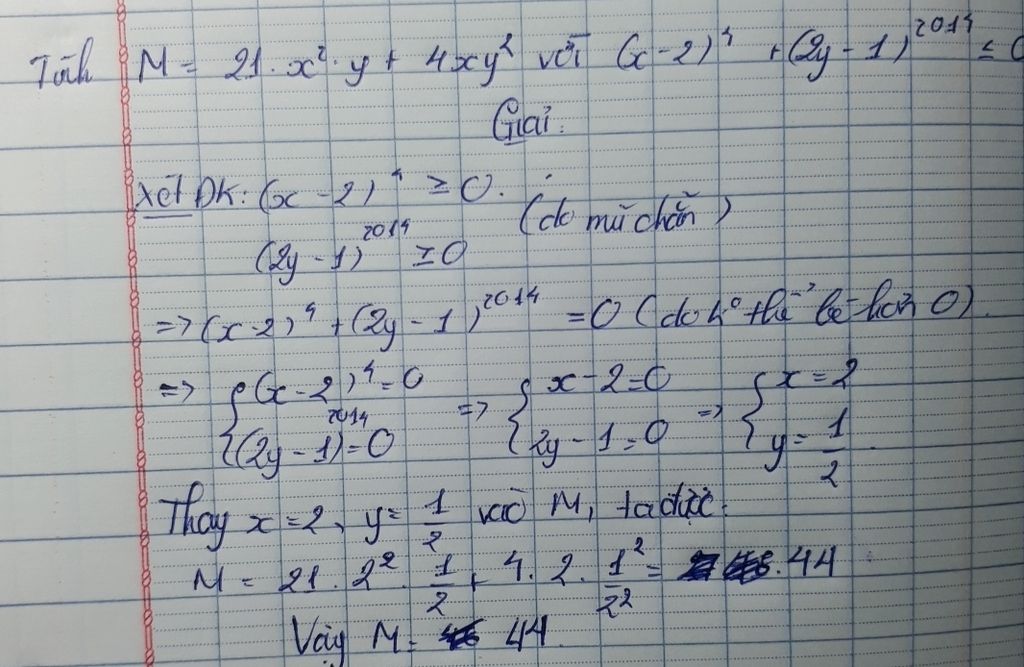 Tính M = 21·x²·y + 4xy² với (x-2)⁴ + (2y-1)²⁰¹⁴ ≤ 0
Giải:
Xét ĐK: (x-2)⁴ ≥ 0.
(do mũ chẵn)
(2y-1)²⁰¹⁴ ≥ 0
=> (x-2)⁴ + (2y-1)²⁰¹⁴ = 0 (do k⁰ thể bé hơn 0).
=> { (x-2)⁴ = 0 => { x-2=0 => { x=2
(2y-1)²⁰¹⁴ = 0 2y-1=0 y = 1/2.
Thay x=2, y= 1/2 vào M, ta được:
M = 21·2²·1/2 + 4·2·1²/2² = 44
Vậy M = 44.